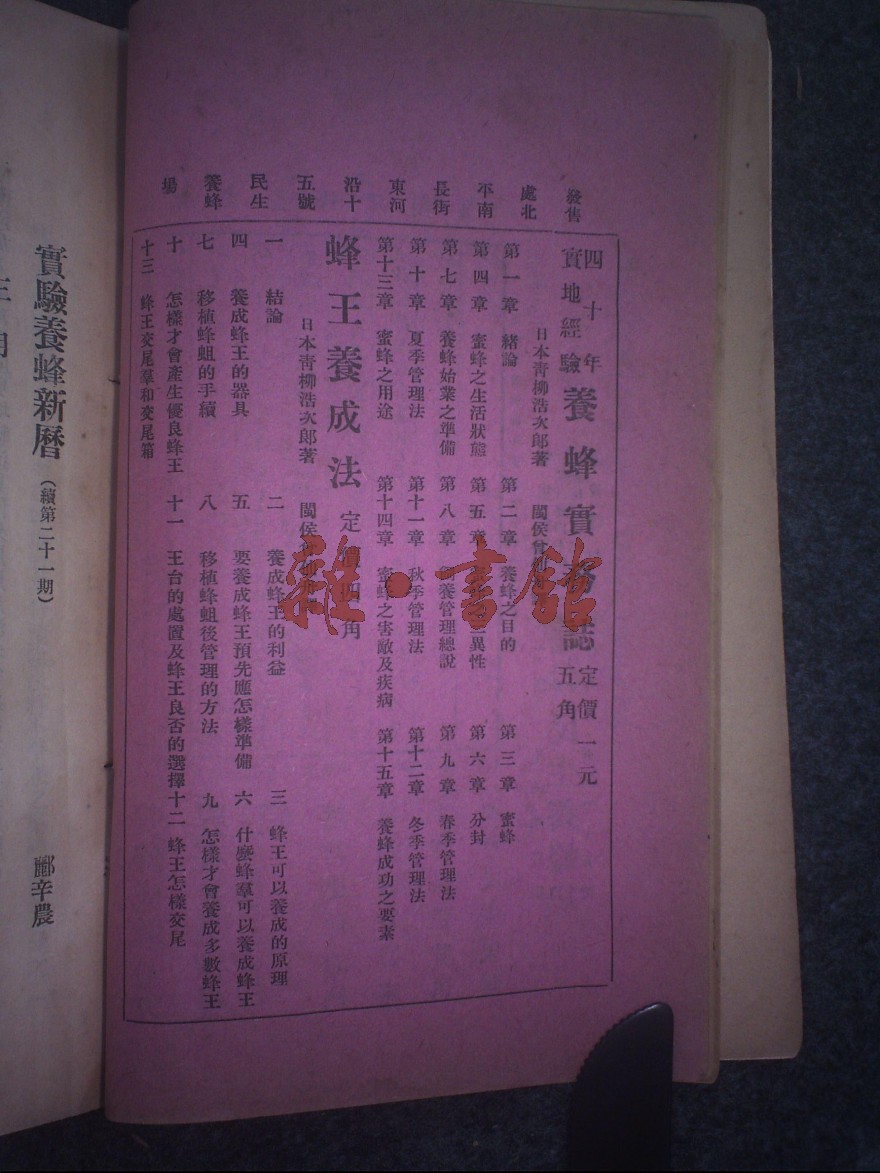 發售處北平南長街東河沿十五號民生養蜂場
四十年實地經驗養蜂實 誌 定價一元五角
日本青柳浩次郎著 閩侯
第一章 緒論 第二章 養蜂之目的 第三章 蜜蜂
第四章 蜜蜂之生活狀態 第五章 異性 第六章 分封
第七章 養蜂始業之準備 第八章 養管理總說 第九章 春季管理法
第十章 夏季管理法 第十一章 秋季管理法 第十二章 冬季管理法
第十三章 蜜蜂之用途 第十四章 蜜蜂之害敵及疾病 第十五章 養蜂成功之要素
蜂王養成法 定價四角
日本青柳浩次郎著 閩侯
一 結論 二 養成蜂王的利益 三 蜂王可以養成的原理
四 養成蜂王的器具 五 要養成蜂王預先應怎樣準備 六 什麼蜂羣可以養成蜂王
七 移植蜂蛆的手續 八 移植蜂蛆後管理的方法 九 怎樣才會養成多數蜂王
十 怎樣才會產生優良蜂王 十一 王台的處置及蜂王良否的選擇 十二 蜂王怎樣交尾
十三 蜂王交尾羣和交尾箱
雜·書館
實驗養蜂新曆 (續第二十一期) 酈辛農